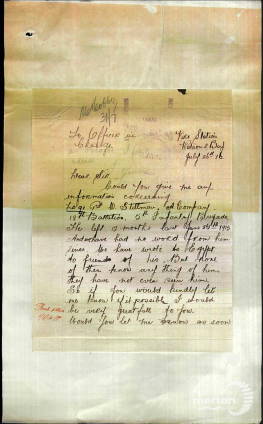 3/7
To Officer in
Charge
Fire Station
Watsons Bay
July 26th 16
Dear Sir,
Could you give me any
information concerning
Pte W. Stillman, Company
18th Battalion, 5th Infantry Brigade
He left months last June 26th 1915
And we have had no word from him
since We have wrote to Egypt
to friends of his. But none
of them know any thing of him
they have not even seen him
So if you would kindly let
me know if it possible I would
be very greatfull to you.
Would you let me know as soon